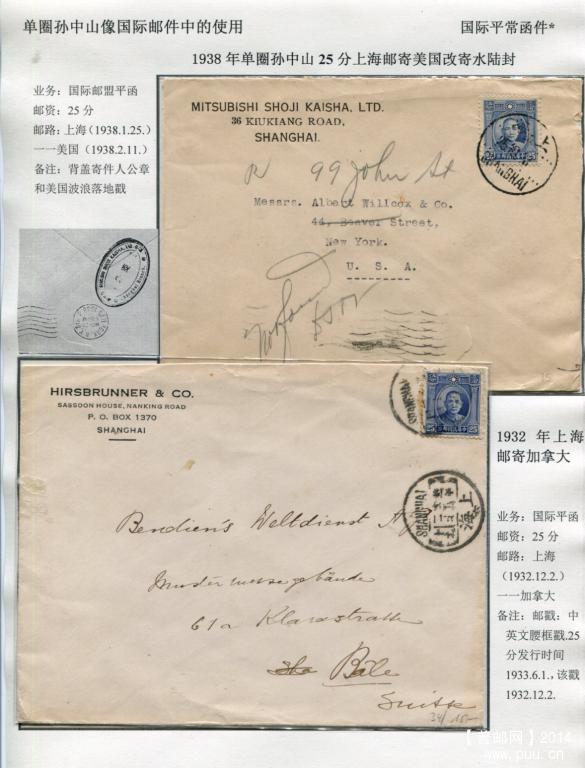 单圈孙中山像国际邮件中的使用
国际平常函件*
1938 年单圈孙中山 25 分上海邮寄美国改寄水陆封
业务：国际邮盟平函
邮资：25 分
邮路：上海（1938.1.25.）
一一美国（1938.2.11.）
备注：背盖寄件人公章
和美国波浪落地戳
MITSUBISHI SHOJI KAISHA, LTD.
36 KIUKIANG ROAD,
SHANGHAI.
99 John St
Messrs. Albert Willcox & Co.
44, Beaver Street,
New York.
U. S. A.
上
SHANGHAI
25
HIRSBRUNNER & CO.
SASSOON HOUSE, NANKING ROAD
P. O. BOX 1370
SHANGHAI
SHANGHAI
25 25
SHANGHAI
上海
Bendien's Weltdienst
Mustermessegebäude
61a Klarastrasse
Bâle
Suisse
1932 年上海
邮寄加拿大
业务：国际平函
邮资：25 分
邮路：上海
（1932.12.2.）
一一加拿大
备注：邮戳：中
英文腰框戳.25
分发行时间
1933.6.1.,该戳
1932.12.2.
2014
www.puu.cn